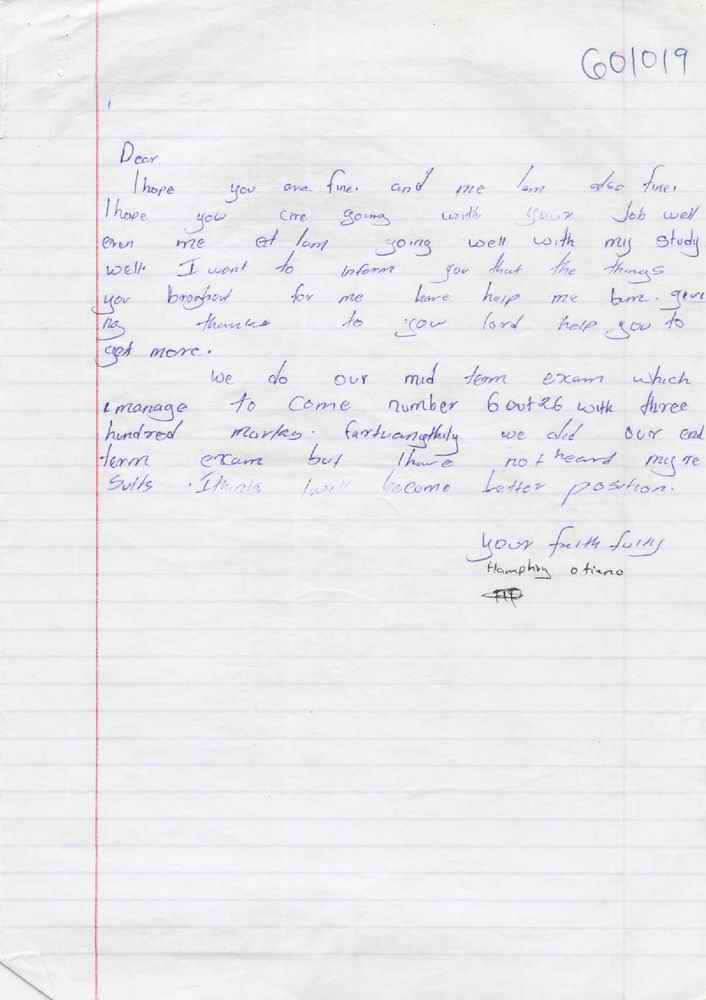 601019
Dear
I hope you are fine. and me I am also fine.
I hope you are going with your Job well
even me at I am going well with my study
well. I want to inform you that the things
you for me have help me givi
ng thanks to you lord help you to
get more.
We do our mid term exam which
I manage to come number 6 out 26 with three
hundred marks. we did our end
term exam but I have not heard my re
sults. I think I will become better position.
your faith fully
Hamphry otieno